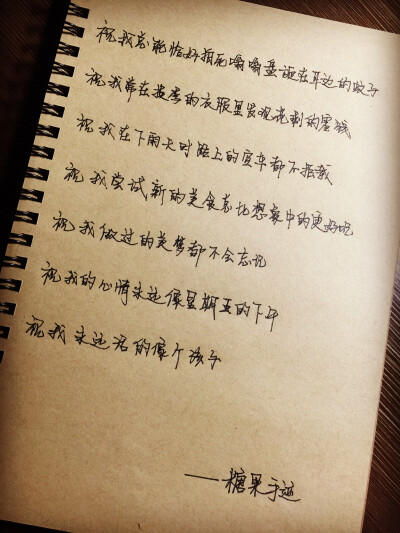 祝我总能恰好拍死嗡嗡盘旋在耳边的蚊子
祝我常在换季的衣服里发现花剩的零钱
祝我在下雨天时路上的空车都不拒载
祝我尝试新的美食总比想象中的更好吃
祝我做过的美梦都不会忘记
祝我的心情永远像星期五的下午
祝我永远活的像个孩子
——糖果手迹